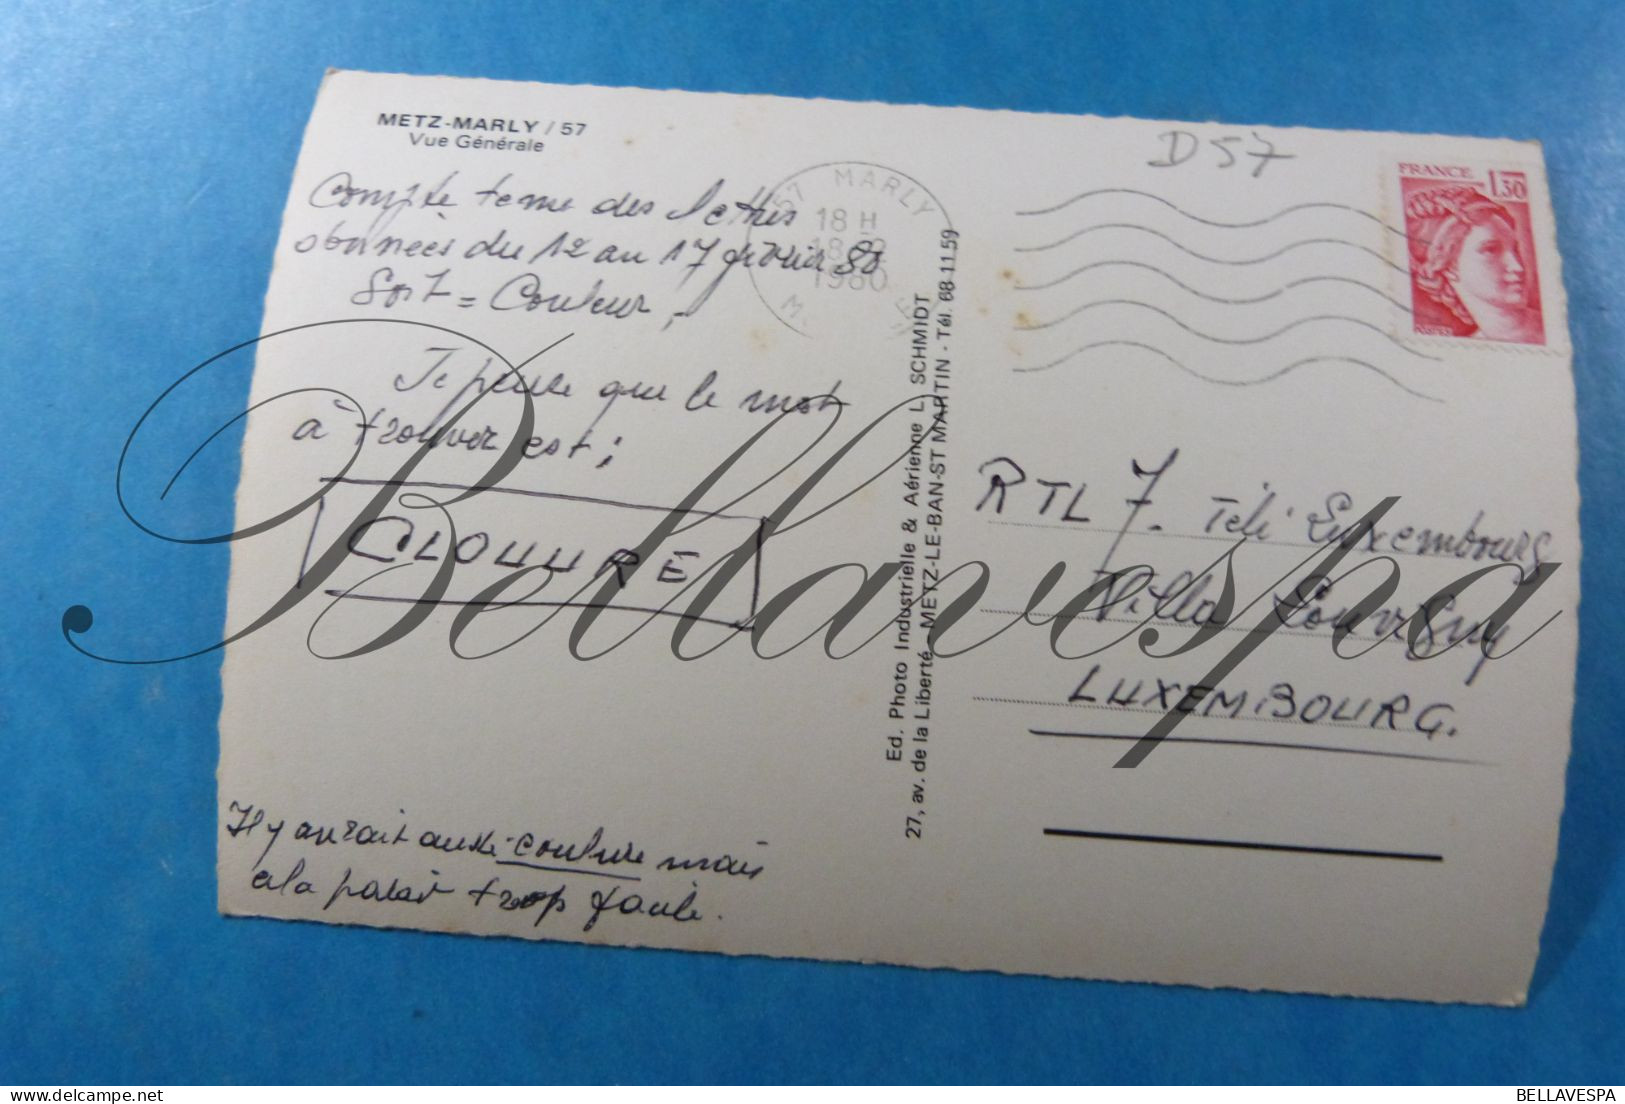 METZ-MARLY / 57
Vue Générale
Compte tenu des lettres
données du 12 au 17 février 80
Soit = Couleur,
Je pense que le mot
à trouver est :
CLOUURE
Il y aurait aussi couleur mais
cela parait trop facile.
57 MARLY
18 H
18-2
1980
Ed. Photo Industrielle & Aérienne L. SCHMIDT
27, av. de la Liberté - METZ-LE-BAN-ST MARTIN - Tél. 68-11.59
D57
FRANCE 1,30
POSTES
RTL 7. Télé Luxembourg
Villa Louvigny
LUXEMBOURG.
Bellavespa
BELLAVESPA